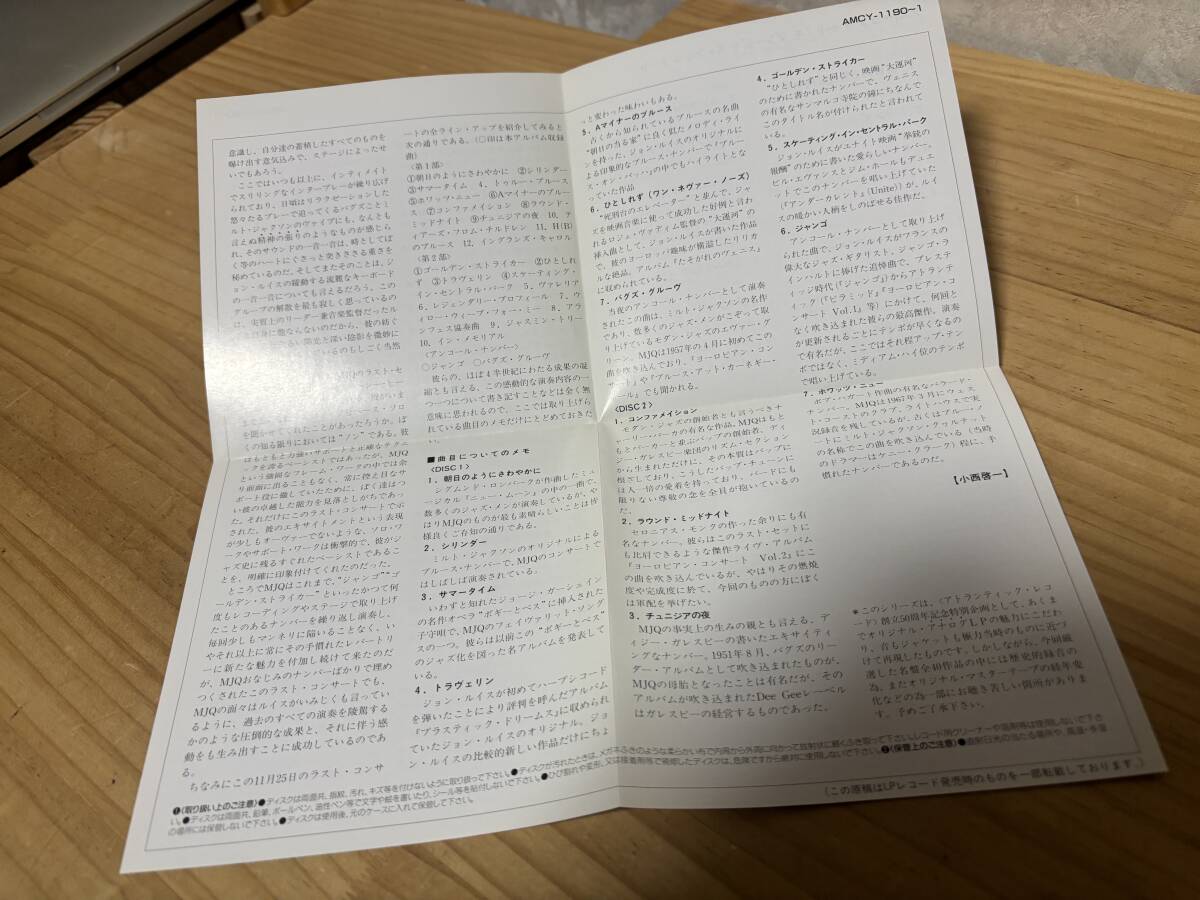 AMCY-1190~1
意識し、自分達の蓄積したすべてのものを
曝け出す意気込みで、ステージによったせ
いでもあろう。
ここではいつも以上に、インティメイト
でスリリングなインタープレーが繰り広げ
られており、日頃はリラクセーションした
悠々たるプレーで迫ってくるバグズことミ
ルト・ジャクソンのヴァイブにも、なんとも
言えぬ精神の張りのようなものが感じら
れ、そのサウンドの一音一音は、時としてば
く等のハートにぐさっと突きささる重さを
秘めているのだ。そしてまたそのことは、ジ
ョン・ルイスの躍動する流麗なキーボード
の一音一音についても言えるだろう。この
グループの解散を最も寂しく思っているの
は、実質上のリーダー兼音楽監督だったル
MJQのラスト・セ
くの知る限りにおいては"ノン"である。彼
はもともと力強いサポートと正確なテクニ
ックを誇るベーシストではあったが、MJQ
という強固なフレーム・ワークの中では余
り前面に出ることもなく、常に控え目なサ
ポート役に徹していたために、ぼく達はつ
い彼の卓越した能力を見落としがちであっ
た。それだけにこのラスト・コンサートで示
された、彼のエキサイトメントという表現
が少しもオーヴァーでないような、ソロ・ワ
ークやサポート・ワークは衝撃的で、彼がジ
ャズ史に残るすぐれたベーシストであるこ
とを、明確に印象付けてくれたのだった。
ところでMJQはこれまで、"ジャンゴ""ゴ
ールデン・ストライカー"といったかつて何
度もレコーディングやステージで取り上げ
たことのあるナンバーを繰り返し演奏し、
毎回少しもマンネリに陥いることなく、い
やそれ以上に常にその手慣れたレパートリ
ーに新たな魅力を付加し続けて来たのだ
が、MJQおなじみのナンバーばかりで埋め
つくされたこのラスト・コンサートでも、
MJQの面々はルイスがいみじくも言ってい
るように、過去のすべての演奏を陵駕する
かのような圧倒的な成果と、それに伴う感
動をも生み出すことに成功しているのであ
る。
ちなみにこの11月25日のラスト・コンサ
ートの全ライン・アップを紹介してみると
次の通りである。(○印は本アルバム収録
曲)
〈第1部〉
①朝日のようにさわやかに ②シリンダー
③サマータイム 4、トゥルー・ブルース
⑤ホワッツ・ニュー ⑥Aマイナーのブルー
ス ⑦コンファメイション ⑧ラウンド・
ミッドナイト ⑨チュニジアの夜 10、テ
ィアーズ・フロム・チルドレン 11、H(B)
のブルース 12、イングランズ・キャロル
〈第2部〉
①ゴールデン・ストライカー ②ひとしれ
ず ③トラヴェリン ④スケーティング・
イン・セントラル・パーク 5、ヴァレリア
6、レジェンダリー・プロフィール 7、ウ
ィロー・ウィープ・フォー・ミー 8、アラ
ンフェス協奏曲 9、ジャスミン・トリー
10、イン・メモリアル
〈アンコール・ナンバー〉
○ジャンゴ ○バグズ・グルーヴ
彼らの、ほぼ4半世紀にわたる成果の凝
縮とも言える、この感動的な演奏内容の一
つ一つについて書き記すことなどは全く無
意味に思われるので、ここでは取り上げら
れている曲目のメモだけにとどめておきた
い。
■曲目についてのメモ
〈DISC 1〉
1. 朝日のようにさわやかに
シグムンド・ロンバークが作曲したミュ
ージカル『ニュー・ムーン』の中の一曲で、
数多くのジャズ・メンが演奏しているが、や
はりMJQのものが最も素晴らしいことは皆
様良くご存知の通りである。
2. シリンダー
ミルト・ジャクソンのオリジナルによる
ブルース・ナンバーで、MJQのコンサートで
はしばしば演奏されている。
3. サマータイム
いわずと知れたジョージ・ガーシュイン
の名作オペラ"ポギーとベス"に挿入された
子守唄で、MJQのフェイヴァリット・ソング
スの一つ。彼らは以前この"ポギーとベス"
のジャズ化を図った名アルバムを発表して
いる。
4. トラヴェリン
ジョン・ルイスが初めてハープシコード
を弾いたことにより評判を呼んだアルバム
『プラスティック・ドリームス』に収められ
ていたジョン・ルイスのオリジナル。ジョ
ン・ルイスの比較的新しい作品だけにちょ
っと変わった味わいもある。
5. Aマイナーのブルース
古くから知られているブルースの名曲
"朝日の当る家"に良く似たメロディ・ライ
ンを持った、ジョン・ルイスのオリジナルに
よる印象的なブルース・ナンバーで『ブルー
ス・オン・バッハ』の中でもハイライトとな
っていた作品
6. ひとしれず(ワン・ネヴァー・ノーズ)
"死刑台のエレベーター"と並んで、ジャ
ズを映画音楽に使って成功した好例と言わ
れるロジェ・ヴァディム監督の"大運河"の
挿入曲として、ジョン・ルイスが書いた作品
で、彼のヨーロッパ趣味が横溢したリリカ
ルな絶品。アルバム『たそがれのヴェニス』
に収められている。
7. バグズ・グルーヴ
当夜のアンコール・ナンバーとして演奏
されたこの曲は、ミルト・ジャクソンの名作
であり、数多くのジャズ・メンがこぞって取
り上げているモダン・ジャズのエヴァー・グ
リーン。MJQは1957年の4月に初めてこの
曲を吹き込んでおり、『ヨーロピアン・コン
サート』や『ブルース・アット・カーネギー・
ホール』でも聞かれる。
〈DISC 2〉
1. コンファメイション
モダン・ジャズの創始者とも言うべきチ
ャーリー・パーカの有名な作品。MJQはもと
もとパーカーと並ぶバップの創始者、ディ
ジー・ガレスピー楽団のリズム・セクション
から生まれただけに、その本質はバップに
根ざしており、こうしたバップ・チューンに
は人一倍の愛着を持っており、バードにも
限りない尊敬の念を全員が抱いているの
だ。
2. ラウンド・ミッドナイト
セロニアス・モンクの作った余りにも有
名なナンバー。彼らはこのラスト・セットに
も比肩できるような傑作ライヴ・アルバム
『ヨーロピアン・コンサート Vol.2』にこ
の曲を吹き込んでいるが、やはりその燃焼
度や完成度に於て、今回のものの方にぼく
は軍配を挙げたい。
3. チュニジアの夜
MJQの事実上の生みの親とも言える、デ
ィジー・ガレスピーの書いたエキサイティ
ングなナンバー。1951年8月、バグズのリー
ダー・アルバムとして吹き込まれたものが、
MJQの母胎となったことは有名だが、その
アルバムが吹き込まれたDee Geeレーベル
はガレスピーの経営するものであった。
4. ゴールデン・ストライカー
"ひとしれず"と同じく、映画"大運河"
のために書かれたナンバーで、ヴェニス
の有名なサンマルコ寺院の鐘にちなんで
このタイトル名が付けられたと言われて
いる。
5. スケーティング・イン・セントラル・パーク
ジョン・ルイスがユナイト映画"拳銃の
報酬"のために書いた愛らしいナンバー。
ビル・エヴァンスとジム・ホールもデュエ
ットでこのナンバーを唱い上げていた
(『アンダーカレント』(Unite))が、ルイ
スの暖かい人柄をしのばせる佳作だ。
6. ジャンゴ
アンコール・ナンバーとして取り上げ
られた曲で、ジョン・ルイスがフランスの
偉大なジャズ・ギタリスト、ジャンゴ・ラ
インハルトに捧げた追悼曲で、プレステ
ィッジ時代(『ジャンゴ』)からアトランテ
ィック(『ピラミッド』『ヨーロピアン・コ
ンサート Vol.1』等)にかけて、何回と
なく吹き込まれた彼らの最高傑作。演奏
が更新されるごとにテンポが早くなるの
で有名だが、ここではそれ程アップ・テン
ポではなく、ミディアム・ハイ位のテンポ
で唱い上げている。
7. ホワッツ・ニュー
ボブ・ハガート作曲の有名なバラード・
ナンバー。MJQは1967年3月にウェス
ト・コーストのクラブ、ライト・ハウスで実
況録音を残しているが、古くはブルー・ノ
ートにミルト・ジャクソン・クヮルテット
の名称でこの曲を吹き込んでいる(当時
のドラマーはケニー・クラーク)程に、手
慣れたナンバーであるのだ。
【小西啓一】
*このシリーズは、〈アトランティック・レコ
ード〉創立50周年記念特別企画として、あくま
でオリジナル・アナログLPの魅力にこだわ
り、音もジャケットも極力当時のものに近づ
けて再現したものです。しかしながら、今回厳
選した名盤全40作品の中には歴史的録音の
為、またオリジナル・マスターテープの経年変
化などの為一部にお聴き苦しい個所がありま
す。予めご了承下さい。
❶〈取り扱い上のご注意〉●ディスクは両面共、指紋、汚れ、キズ等を付けないように取り扱って下さい。●ディスクが汚れたときは、メガネふきのような柔らかい布で内周から外周に向かって放射状に軽くふき取って下さい。レコード用クリーナーや溶剤等は使用しないで下さ
い。●ディスクは両面共、鉛筆、ボールペン、油性ペン等で文字や絵を書いたり、シール等を貼付しないで下さい。●ひび割れや変形、又は接着剤等で補修したディスクは、危険ですから絶対に使用しないで下さい。❷〈保管上のご注意〉●直射日光の当たる場所や、高温・多湿
の場所には保管しないで下さい。●ディスクは使用後、元のケースに入れて保管して下さい。
(この原稿はLPレコード発売時のものを一部転載しております。)